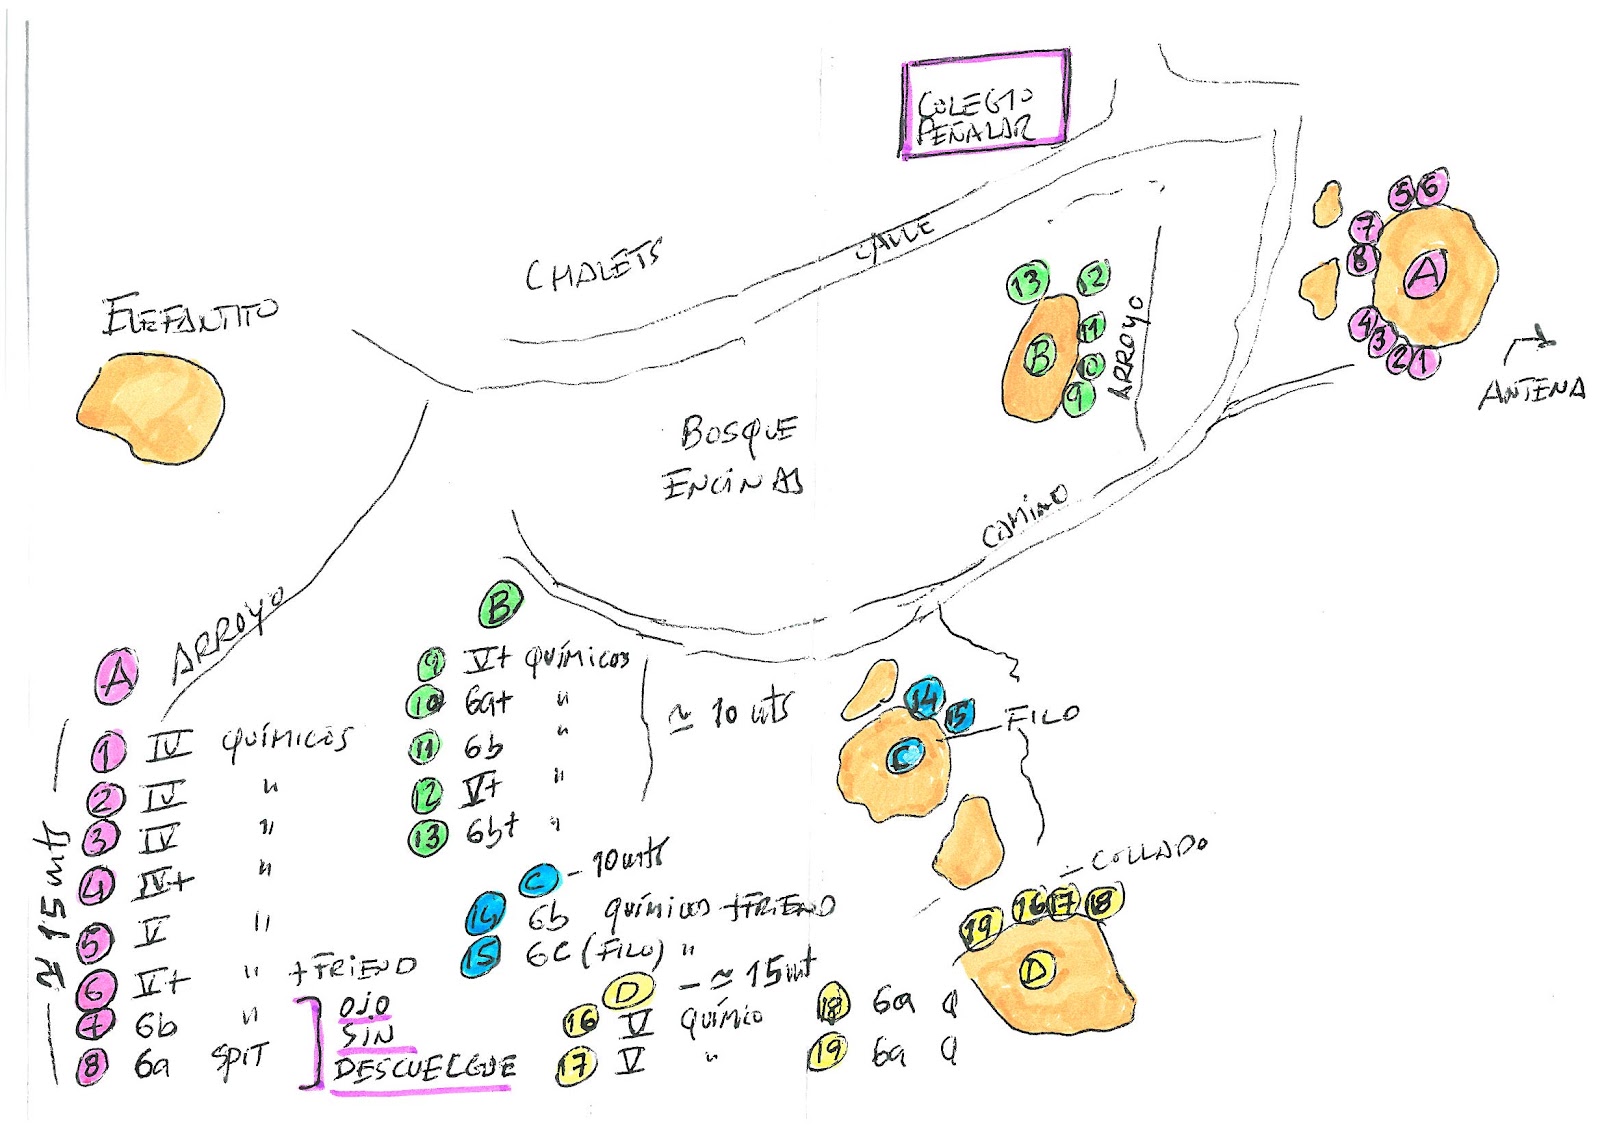 COLEGIO
PEÑALAR
CALLE
CHALETS
ELEFANTITO
5 6
7
8
A
4 3 2 1
ANTENA
13 12
11
B
10
9
ARROYO
BOSQUE
ENCINAS
CAMINO
ARROYO
14
15
FILO
C
- COLLADO
19 16 17 18
D
A
≈ 15 mts
1 IV QUÍMICOS
2 IV "
3 IV "
4 IV+ "
5 V "
6 V+ " + FRIEND
7 6b "
8 6a SPIT
OJO
SIN
DESCUELGUE
B
9 V+ QUÍMICOS
10 6a+ "
11 6b "
12 V+ "
13 6b+ "
≈ 10 mts
C - 10 mts
14 6b QUÍMICOS + FRIEND
15 6C (FILO) "
D - ≈ 15 mt
16 V QUÍMICO
17 V "
18 6a Q
19 6a Q